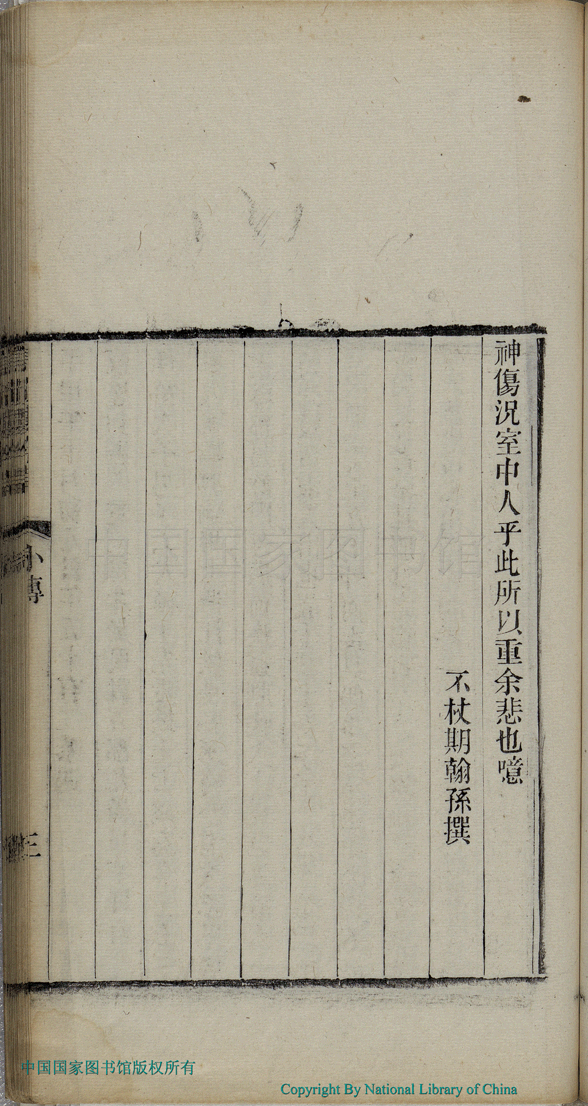 神傷況室中人乎此所以重余悲也噫
不杖期翰孫撰
小傳
三
中国国家图书馆
中国国家图书馆版权所有
Copyright By National Library of China